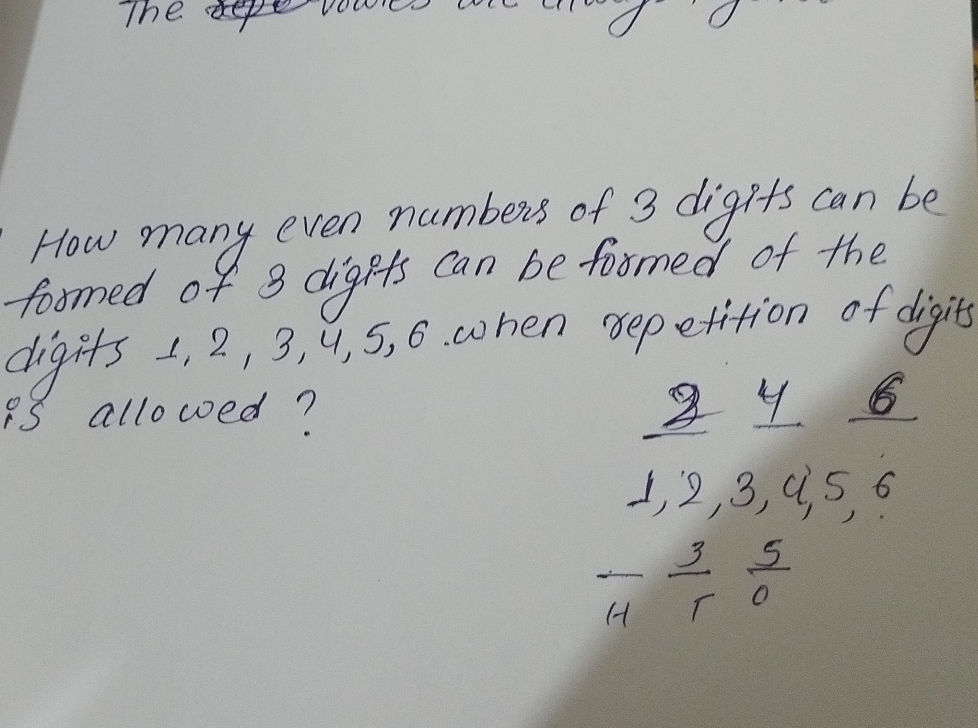 The
How many even numbers of 3 digits can be
formed of 3 digits can be formed of the
digits 1, 2, 3, 4, 5, 6 .when repetition of digits
is allowed ?
4 6
1, 2, 3, 4, 5, 6
3 5
H T O